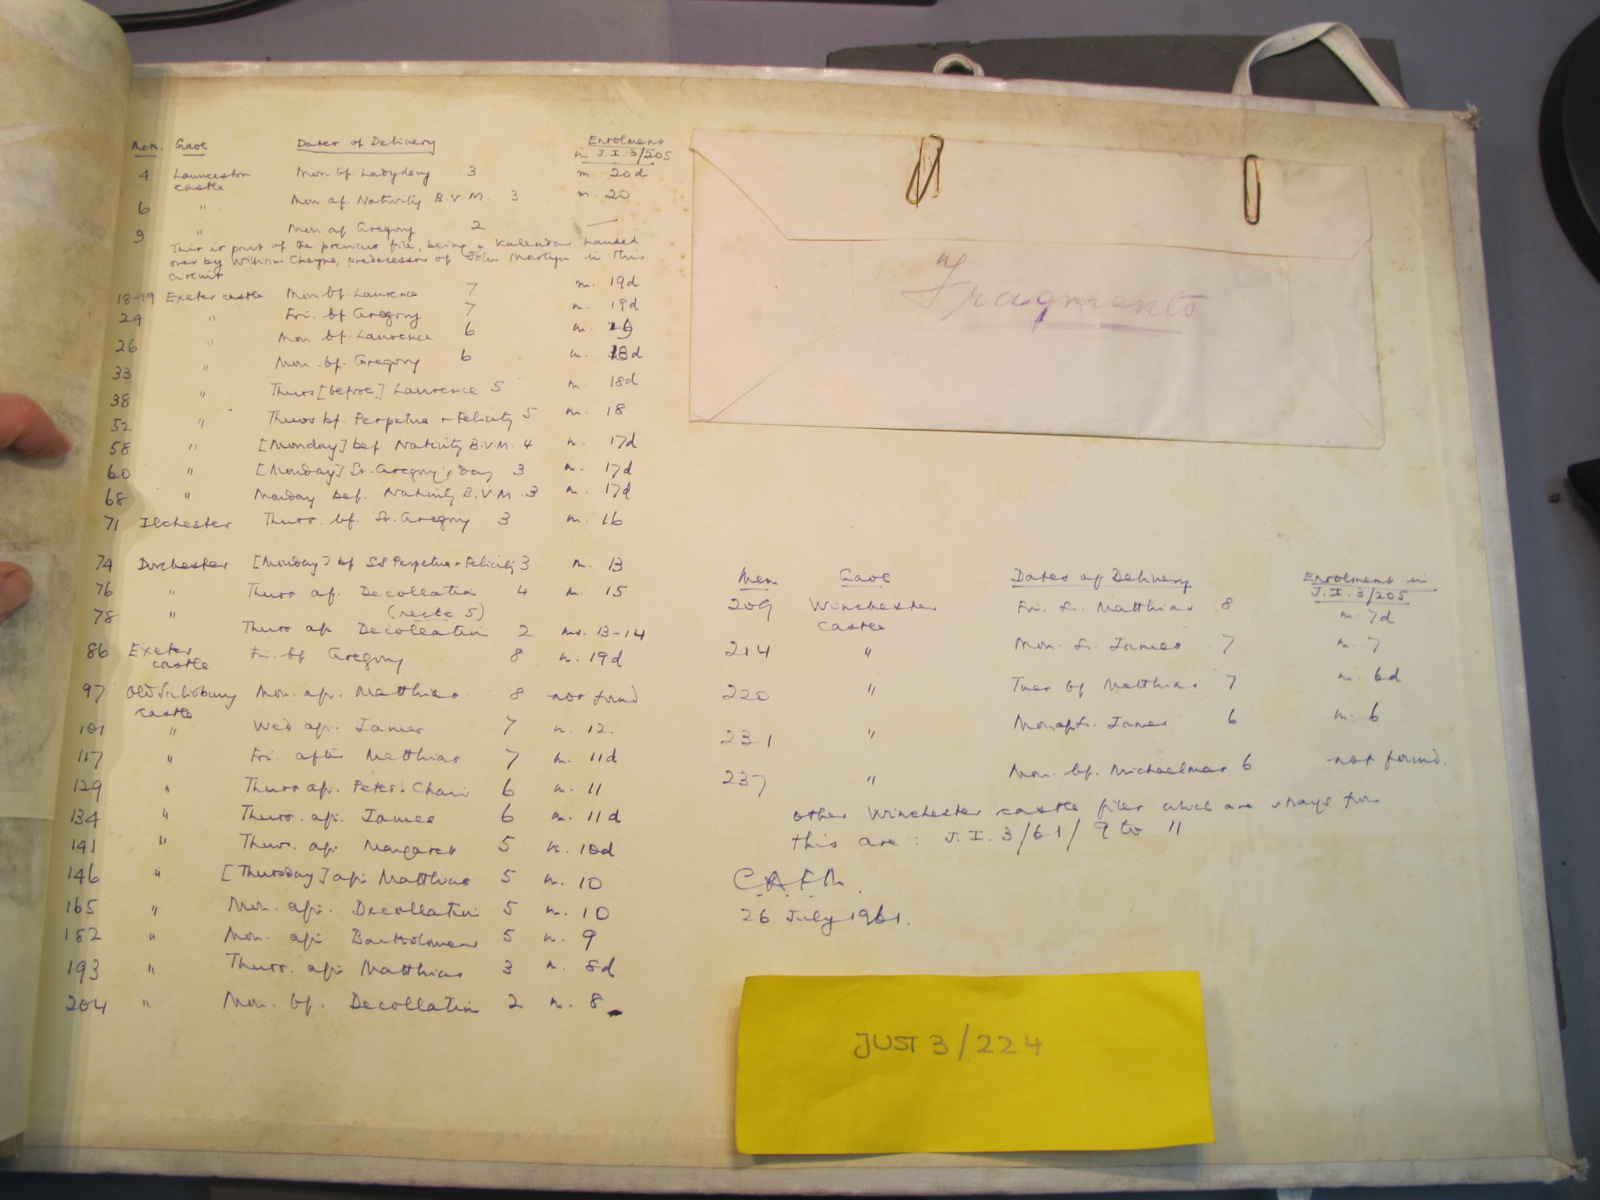 Mem. Gaol Dates of Delivery Enrolment in J.I.3/205
4 Launceston castle Mon bf. Ladyday 3 m. 20d
6 " Mon af. Nativity B.V.M. 3 m. 20
9 " Mon af. Gregory 2 —
This is part of the previous file, being a Kalendar handed
over by William Cheyne, predecessor of John Martyn in this
circuit
18-19 Exeter castle Mon. bf. Laurence 7 m. 19d
24 " Fri. bf Gregory 7 m. 19d
26 " Mon. bf. Laurence 6 m. 19
33 " Mon. bf. Gregory 6 m. 18d
38 " Thurs [before] Laurence 5 m. 18d
52 " Thurs bf. Perpetua + Felicity 5 m. 18
58 " [Monday] bef Nativity B.V.M. 4 m. 17d
60 " [Monday] St. Gregory's day 3 m. 17d
68 " Monday bef. Nativity B.V.M. 3 m. 17d
71 Ilchester Thurs. bf. St. Gregory 3 m. 16
74 Dorchester [Monday] bf SS Perpetua + Felicity 3 m. 13
76 " Thurs af. Decollation 4 m. 15
(recte 5)
78 " Thurs af. Decollation 2 ms. 13-14
86 Exeter castle Fri. bf Gregory 8 m. 19d
97 Old Salisbury castle Mon. af. Matthias 8 not found
101 " Wed af. James 7 m. 12.
117 " Fri. after Matthias 7 m. 11d
129 " Thurs af. Peter's Chair 6 m. 11
134 " Thurs. af. James 6 m. 11d
141 " Thurs. af. Margaret 5 m. 10d
146 " [Thursday] af. Matthias 5 m. 10
165 " Mon. af. Decollation 5 m. 10
182 " Mon. af. Bartholomew 5 m. 9
193 " Thurs. af. Matthias 3 m. 8d
204 " Mon. bf. Decollation 2 m. 8
Fragments
Mem Gaol Dates of Delivery Enrolment in J.I.3/205
209 Winchester castle Fri. St. Matthias 8 m. 7d
214 " Mon. St. James 7 m. 7
220 " Tues bf Matthias 7 m. 6d
231 " Mon af St. James 6 m. 6
237 " Mon. bf. Michaelmas 6 not found.
other Winchester castle files which are strays from
this are : J.I.3/61/9 to 11
C.A.F.M.
26 July 1961.
JUST 3/224